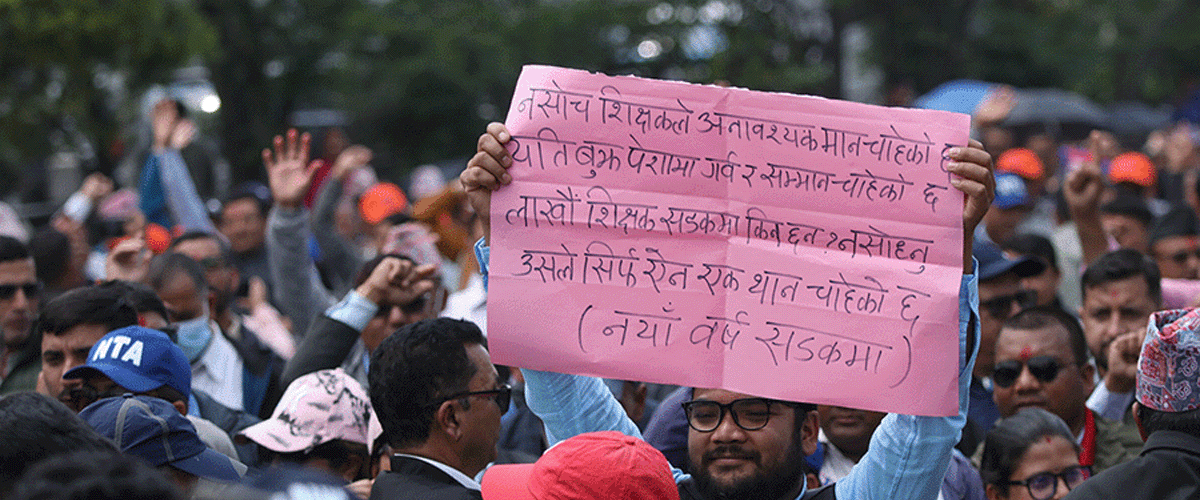 न सोच शिक्षकले अनावश्यक मान चाहेको छ
यति त बुझ पेशामा गर्व र सम्मान चाहेको छ
लाखौं शिक्षक सडकमा किन छन् ? न सोध्नु
उसले सिर्फ ऐन एक थान चाहेको छ
(नयाँ वर्ष सडकमा)
NTA